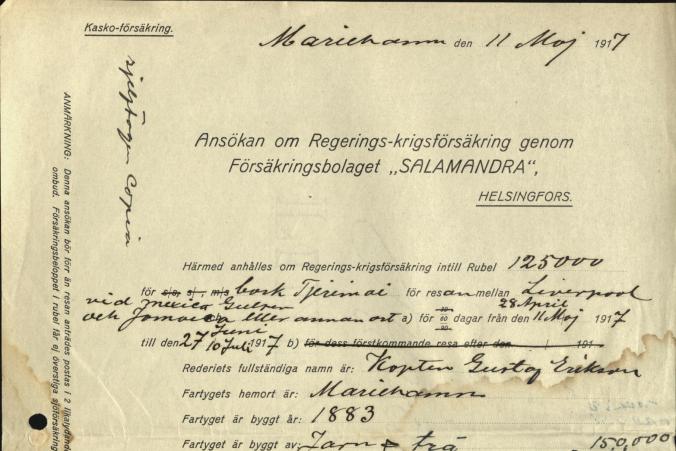 Kasko-försäkring.
Mariehamn den 11 Maj 1917
Ansökan om Regerings-krigsförsäkring genom
Försäkringsbolaget „SALAMANDRA",
HELSINGFORS.
Härmed anhålles om Regerings-krigsförsäkring intill Rubel 125000
för s/s, s/, m/s bark Tjerimai för resan mellan Liverpool
vid mexica Gulfen 28 April
och Jamaica eller annan ort a) för 60 90 dagar från den 11 Maj 1917
Juni
till den 27 10 Juli 1917 b) för dess förstkommande resa efter den 191
Rederiets fullständiga namn är: Kapten Gustaf Erikson
Fartygets hemort är: Mariehamn
Fartyget är byggt år: 1883
Fartyget är byggt av: Jarn & trä 150,000
copia
ANMÄRKNING: Denna ansökan bör förr än resan anträdes postas i 2 likalydande
ombud. Försäkringsbeloppet i rubel får ej överstiga sjöförsäkring